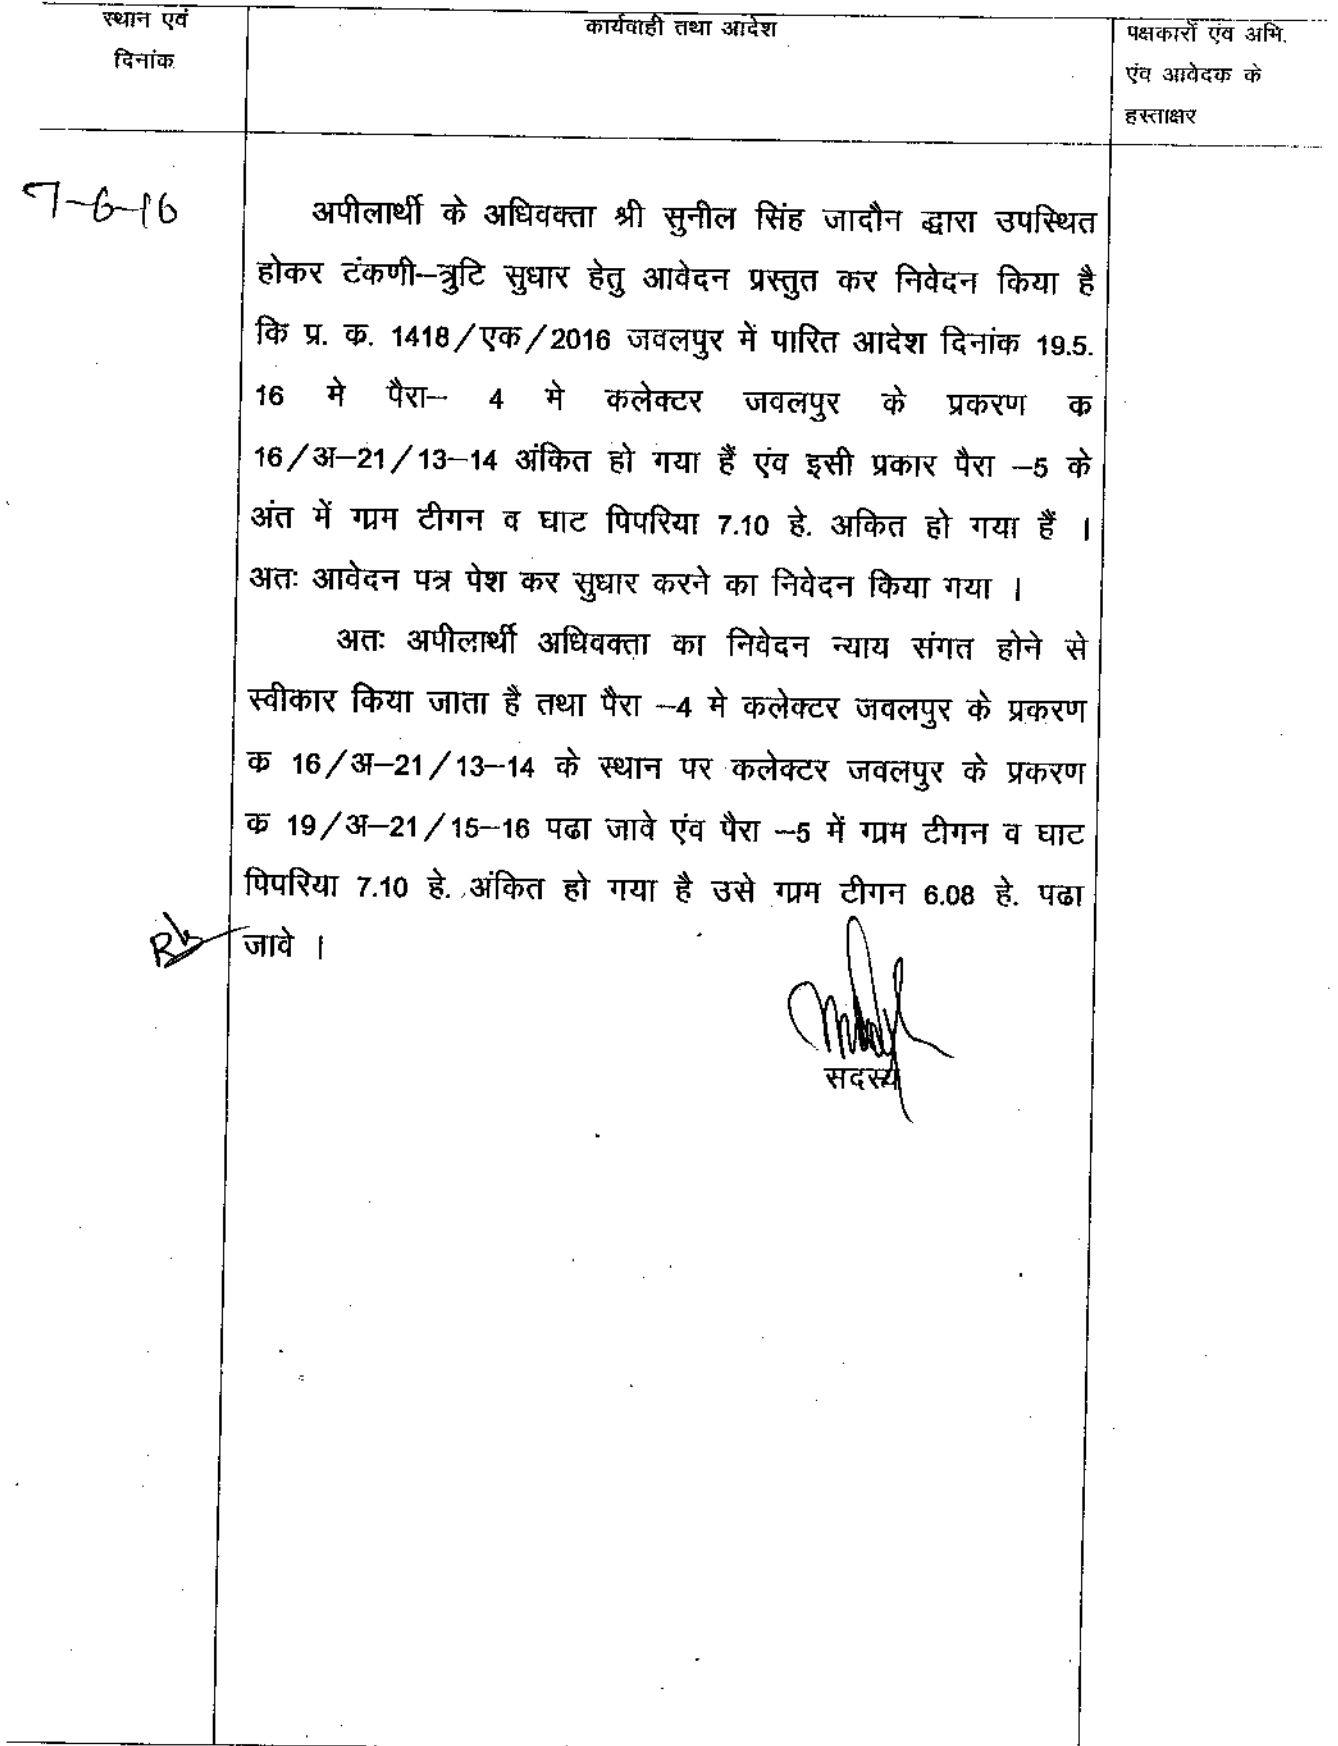 स्थान एवं
दिनांक
कार्यवाही तथा आदेश
पक्षकारों एंव अभि.
एंव आवेदक के
हस्ताक्षर
7-6-16
अपीलार्थी के अधिवक्ता श्री सुनील सिंह जादौन द्वारा उपस्थित
होकर टंकणी–त्रुटि सुधार हेतु आवेदन प्रस्तुत कर निवेदन किया है
कि प्र. क. 1418/एक/2016 जवलपुर में पारित आदेश दिनांक 19.5.
16 मे पैरा– 4 मे कलेक्टर जवलपुर के प्रकरण क
16/अ–21/13–14 अंकित हो गया हैं एंव इसी प्रकार पैरा –5 के
अंत में गाम टीगन व घाट पिपरिया 7.10 हे. अकित हो गया हैं ।
अतः आवेदन पत्र पेश कर सुधार करने का निवेदन किया गया ।
अतः अपीलार्थी अधिवक्ता का निवेदन न्याय संगत होने से
स्वीकार किया जाता है तथा पैरा –4 मे कलेक्टर जवलपुर के प्रकरण
क 16/अ–21/13–14 के स्थान पर कलेक्टर जवलपुर के प्रकरण
क 19/अ–21/15–16 पढा जावे एंव पैरा –5 में गाम टीगन व घाट
पिपरिया 7.10 हे. अंकित हो गया है उसे गाम टीगन 6.08 हे. पढा
जावे ।
सदस्य